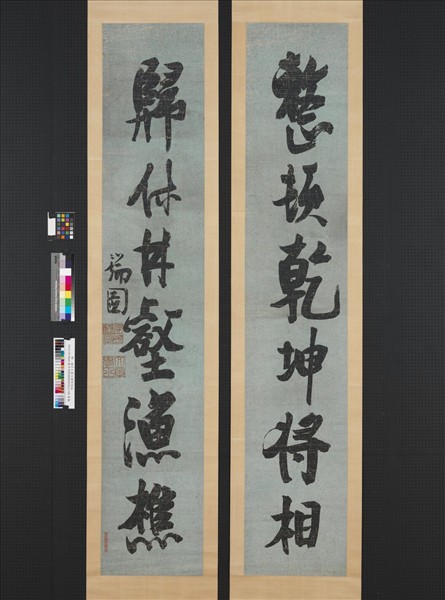 整頓乾坤將相
歸休丘壑漁樵
瑞圖